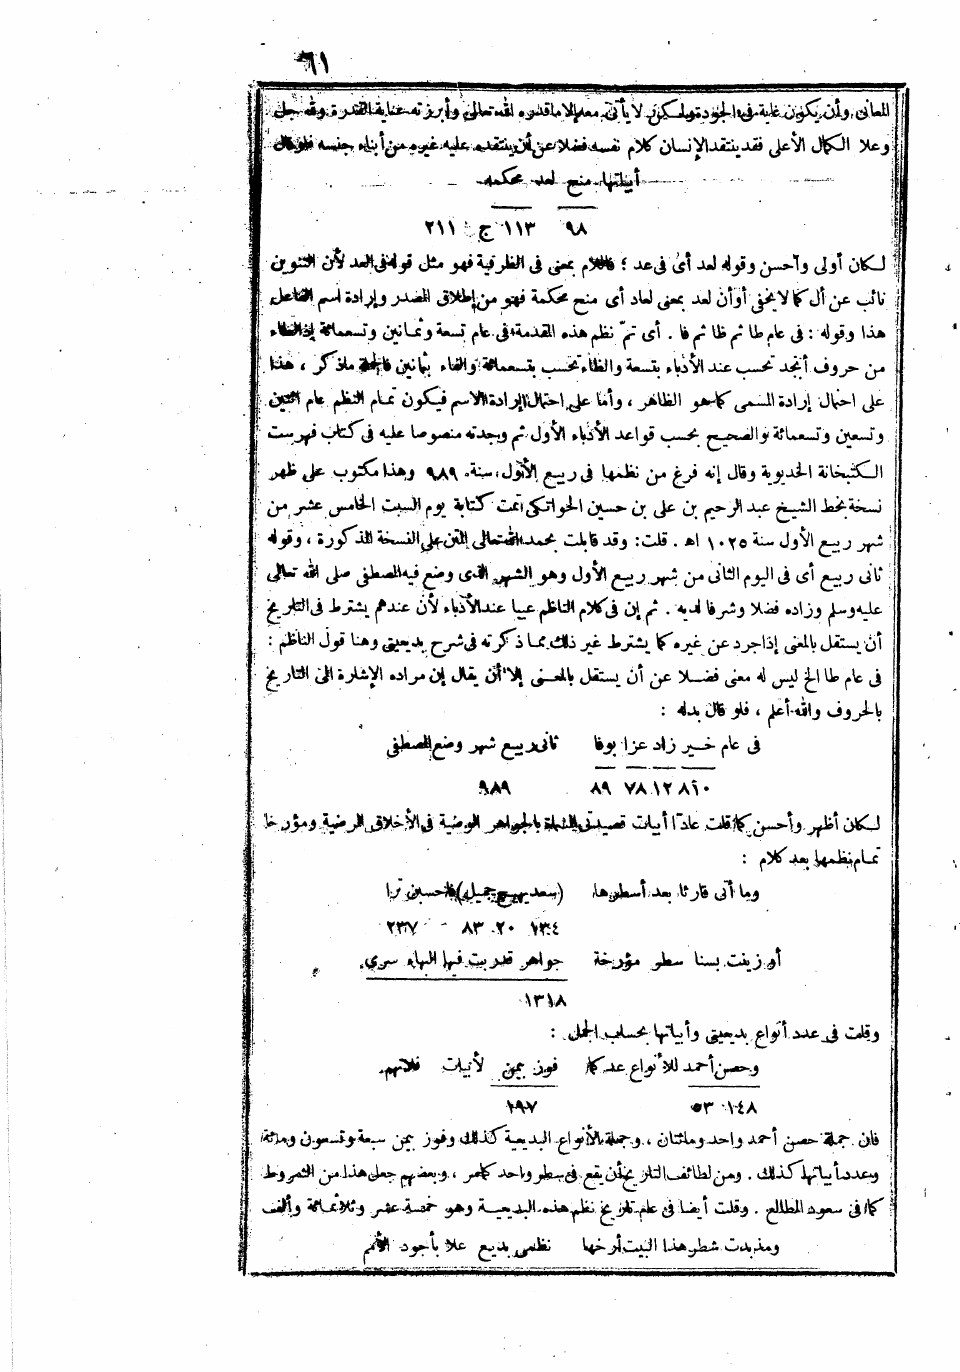 ٦١
المعانى وأن يكون غاية فى الجودة ولكن لا يأتى معه إلا ما قدره الله تعالى وأبرزته عناية القدرة ولله جل
وعلا الكمال الأعلى فقد ينتقد الإنسان كلام نفسه فضلا عن أن ينتقده عليه غيره من أبناء جنسه فلو قال
أبياتها منح لعد محكمه
٩٨ ١١٣ ج ٢١١
لكان أولى وأحسن وقوله لعد أى فى عد ؛ فاللام بمعنى فى الظرفية فهو مثل قوله فى العد لأن التنوين
نائب عن أل كما لا يخفى أو أن لعد بمعنى لعاد أى منح محكمة فهو من إطلاق المصدر وإرادة اسم الفاعل
هذا وقوله : فى عام طا ثم ظا ثم فا . أى تمّ نظم هذه المقدمة فى عام تسعة وثمانين وتسعمائة إذ الطاء
من حروف أبجد تحسب عند الأدباء بتسعة والظاء تحسب بتسعمائة والفاء بثمانين فالجملة ماذكر ، هذا
على احتمال إرادة المسمى كما هو الظاهر ، وأما على احتمال إرادة الاسم فيكون تمام النظم عام اثنين
وتسعين وتسعمائة والصحيح بحسب قواعد الأدباء الأول ثم وجدته منصوصا عليه فى كتاب فهرست
الكتبخانة الخديوية وقال إنه فرغ من نظمها فى ربيع الأول سنة ٩٨٩ وهذا مكتوب على ظهر
نسخة بخط الشيخ عبد الرحيم بن على بن حسين الحواتكى تمت كتابة يوم السبت الخامس عشر من
شهر ربيع الأول سنة ١٠٢٥ اه . قلت : وقد قابلت بحمد الله تعالى المتن على النسخة المذكورة ، وقوله
ثانى ربيع أى فى اليوم الثانى من شهر ربيع الأول وهو الشهر الذى وضع فيه المصطفى صلى الله تعالى
عليه وسلم وزاده فضلا وشرفا لديه . ثم إن فى كلام الناظم عيبا عند الأدباء لأن عندهم يشترط فى التاريخ
أن يستقل بالمعنى إذا جرد عن غيره كما يشترط غير ذلك مما ذكرته فى شرح بديعيتى وهنا قول الناظم :
فى عام طا الخ ليس له معنى فضلا عن أن يستقل بالمعنى إلا أن يقال إن مراده الإشارة إلى التاريخ
بالحروف والله أعلم ، فلو قال بدله :
فى عام خير زاد عزا بوفا ثانى ربيع شهر وضع المصطفى
٨١٠ ١٢ ٧٨ ٨٩ ٩٨٩
لكان أظهر وأحسن كما قلت عادّا أبيات قصيدتى المسماة بالجواهر الوضية فى الأخلاق الرضية ومؤرخا
تمام نظمها بعد كلام :
وما أتى قارئا بعد أسطرها (سعد يهيج جميله) فاحسبن ترا
١٣٤ ٢٠ ٨٣ ٢٣٧
أو زينت بسنا سطر مؤرخة جواهر قد ربت فيها البهاء سرى
١٣١٨
وقلت فى عدد أنواع بديعيتى وأبياتها بحساب الجمل :
وحصن أحمد للأنواع عد كما فوز بيمن لأبيات فلاتهم
١٤٨ ٥٣ ١٩٧
فان جملة حصن أحمد واحد ومائتان ، وجملة الأنواع البديعية كذلك وفوز بيمن سبعة وتسعون ومائة
وعدد أبياتها كذلك . ومن لطائف التاريخ أن يقع فى سطر واحد كما مر ، وبعضهم جعل هذا من الشروط
كما فى سعود المطالع . وقلت أيضا فى عام تاريخ نظم هذه البديعية وهو خمسة عشر وثلاثمائة وألف
ومذ بدت شطر هذا البيت أرخها نظمى بديع علا بأجود الأمم